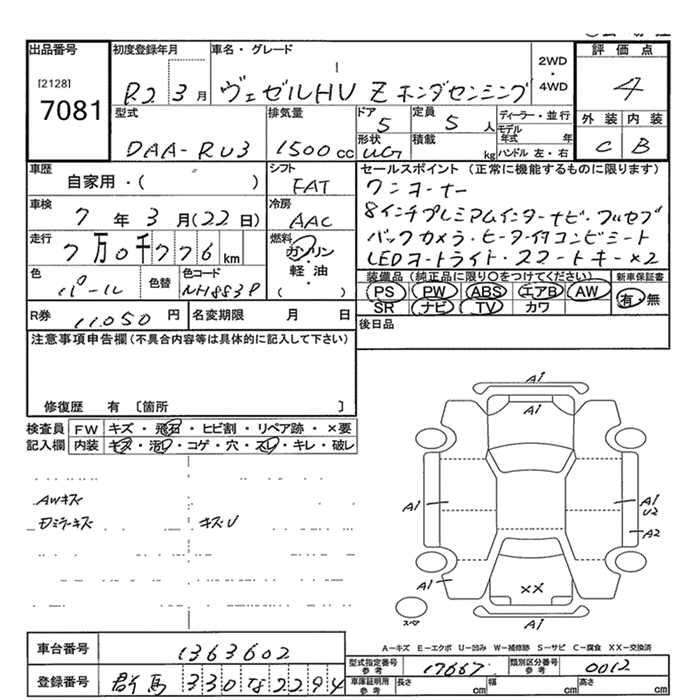 出品番号
[2128]
7081
初度登録年月
R2 3月
車名・グレード
ヴェゼルHV Z ホンダセンシング
2WD
・
4WD
評価点
4
外装 内装
C B
型式
DAA-RU3
排気量
1500 cc
ドア
5
定員
5 人
形状
UG
積載
kg
ディーラー・並行
モデル年式 年
ハンドル 左・右
車歴
自家用・( )
シフト
FAT
車検
7年3月(22日)
冷房
AAC
走行
7万0千776km
燃料
ガソリン
軽油
( )
色
パール
色替
色コード
NH883P
セールスポイント (正常に機能するものに限ります)
ワンオーナー
8インチプレミアムインターナビ・フルセグ
バックカメラ・ヒーター付コンビシート
LEDオートライト・スマートキー×2
装備品(純正品に限り〇をつけてください)
新車保証書
PS PW ABS エアB AW
SR ナビ TV カワ
有・無
R券
11,050 円
名変期限 月 日
後日品
注意事項申告欄(不具合内容等は具体的に記入して下さい)
修復歴 有 〔箇所 〕
検査員記入欄
FW キズ・飛石・ヒビ割・リペア跡・×要
内装 キズ・汚レ・コゲ・穴・スレ・キレ・破レ
AWキズ
Dミラーキズ
キズU
A1
A1
A1
A1
U2
A2
A1
XX
A1
スペア
A-キズ E-エクボ U-凹み W-補修跡 S-サビ C-腐食 XX-交換済
車台番号
1363602
登録番号
群馬 330 な 2294
型式指定番号
参考
17667
類別区分番号
参考
0012
車庫証明用
参考
長さ cm 幅 cm 高さ cm